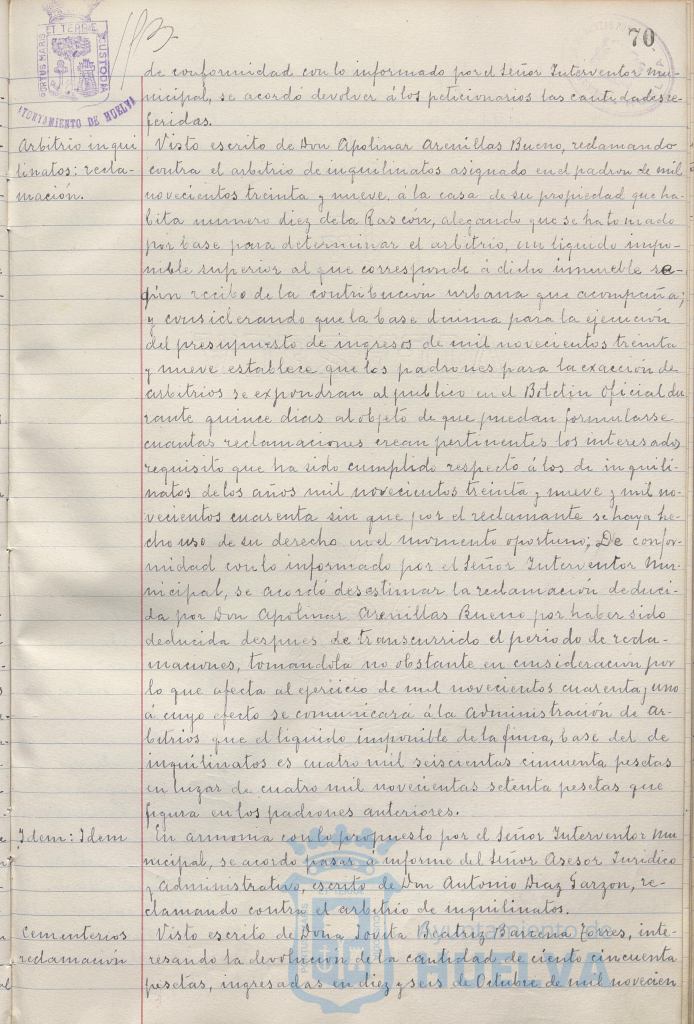 70
PORTUS MARIS ET TERRAE CUSTODIA
AYUNTAMIENTO DE HUELVA
de conformidad con lo informado por el Señor Interventor mu-
nicipal, se acordó devolver á los peticionarios las cantidades re-
feridas.
Arbitrio inqui
linatos: recla-
mación.
Visto escrito de Don Apolinar Arenillas Bueno, reclamando
contra el arbitrio de inquilinatos asignado en el padron de mil
novecientos treinta y nueve, á la casa de su propiedad que ha-
bita numero diez de la Rascón, alegando que se ha tomado
por base para determinar el arbitrio, un liquido impo-
nible superior al que corresponde á dicho inmueble se-
gún recibo de la contribución urbana que acompaña;
y considerando que la base ‎ para la ejecución
del presupuesto de ingresos de mil novecientos treinta
y nueve establece que los padrones para la exacción de
arbitrios se expondran al publico en el Boletin Oficial du
rante quince dias al objeto de que puedan formularse
cuantas reclamaciones crean pertinentes los interesados
requisito que ha sido cumplido respecto á los de inquili-
natos de los años mil novecientos treinta y nueve y mil no-
vecientos cuarenta sin que por el reclamante se haya he-
cho uso de su derecho en el momento oportuno; De confor-
midad con lo informado por el Señor Interventor Mu-
nicipal, se acordó desestimar la reclamación deduci-
da por Don Apolinar Arenillas Bueno por haber sido
deducida despues de transcurrido el periodo de recla-
maciones, tomandola no obstante en consideracion por
lo que afecta al ejercicio de mil novecientos cuarenta y uno
á cuyo efecto se comunicará á la Administración de Ar-
bitrios que el liquido imponible de la finca, base del de
inquilinatos es cuatro mil seiscientas cincuenta pesetas
en lugar de cuatro mil novecientas setenta pesetas que
figura en los padrones anteriores.
Idem: Idem
En armonia con lo propuesto por el Señor Interventor Mu
nicipal, se acordo pasar á informe del Señor Asesor Juridico
y Administrativo, escrito de Don Antonio Diaz Garzon, re-
clamando contra el arbitrio de inquilinatos.
Cementerios
reclamación
Visto escrito de Doña Jovita Beatriz Barcena Torres, inte-
resando la devolución de la cantidad de ciento cincuenta
pesetas, ingresadas en diez y seis de Octubre de mil novecien
Ayuntamiento de
HUELVA